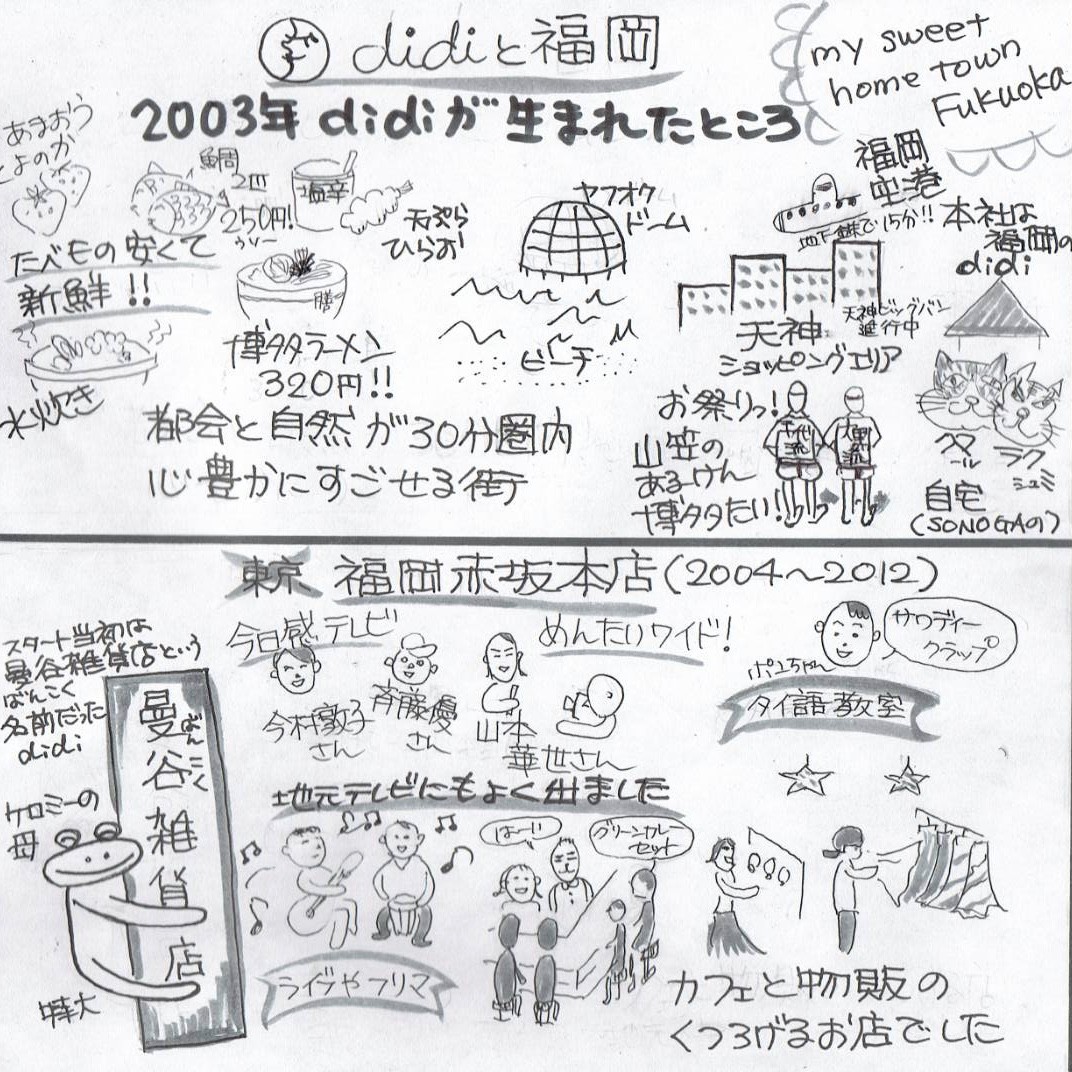 didiと福岡
2003年 didiが生まれたところ
my sweet
home town
Fukuoka
あまおう
とよのか
鯛
2皿
250円!
塩辛
天ぷら
ひらお
たべもの安くて
新鮮!!
博多ラーメン
320円!!
水炊き
ヤフオク
ドーム
ビーチ
福岡
空港
地下鉄で15分!!
本社は
福岡の
didi
天神
ショッピングエリア
天神ビッグバン
進行中
お祭りっ!
山笠の
あるけん
博多たい!!
千代
流
大黒
流
自宅
(SONOGAの)
都会と自然が30分圏内
心豊かにすごせる街
東京 福岡赤坂本店(2004〜2012)
スタート当初は
曼谷雑貨店という
ばんこく
名前だった
didi
曼谷雑貨店
ばんこく
ケロミーの
母
特大
今日感テレビ
めんたいワイド!
今村敦子
さん
斉藤優
さん
山本
華世さん
地元テレビにもよく出ました
サワディー
クラップ
タイ語教室
ライヴやフリマ
はーい
グリーンカレー
セット
カフェと物販の
くつろげるお店でした